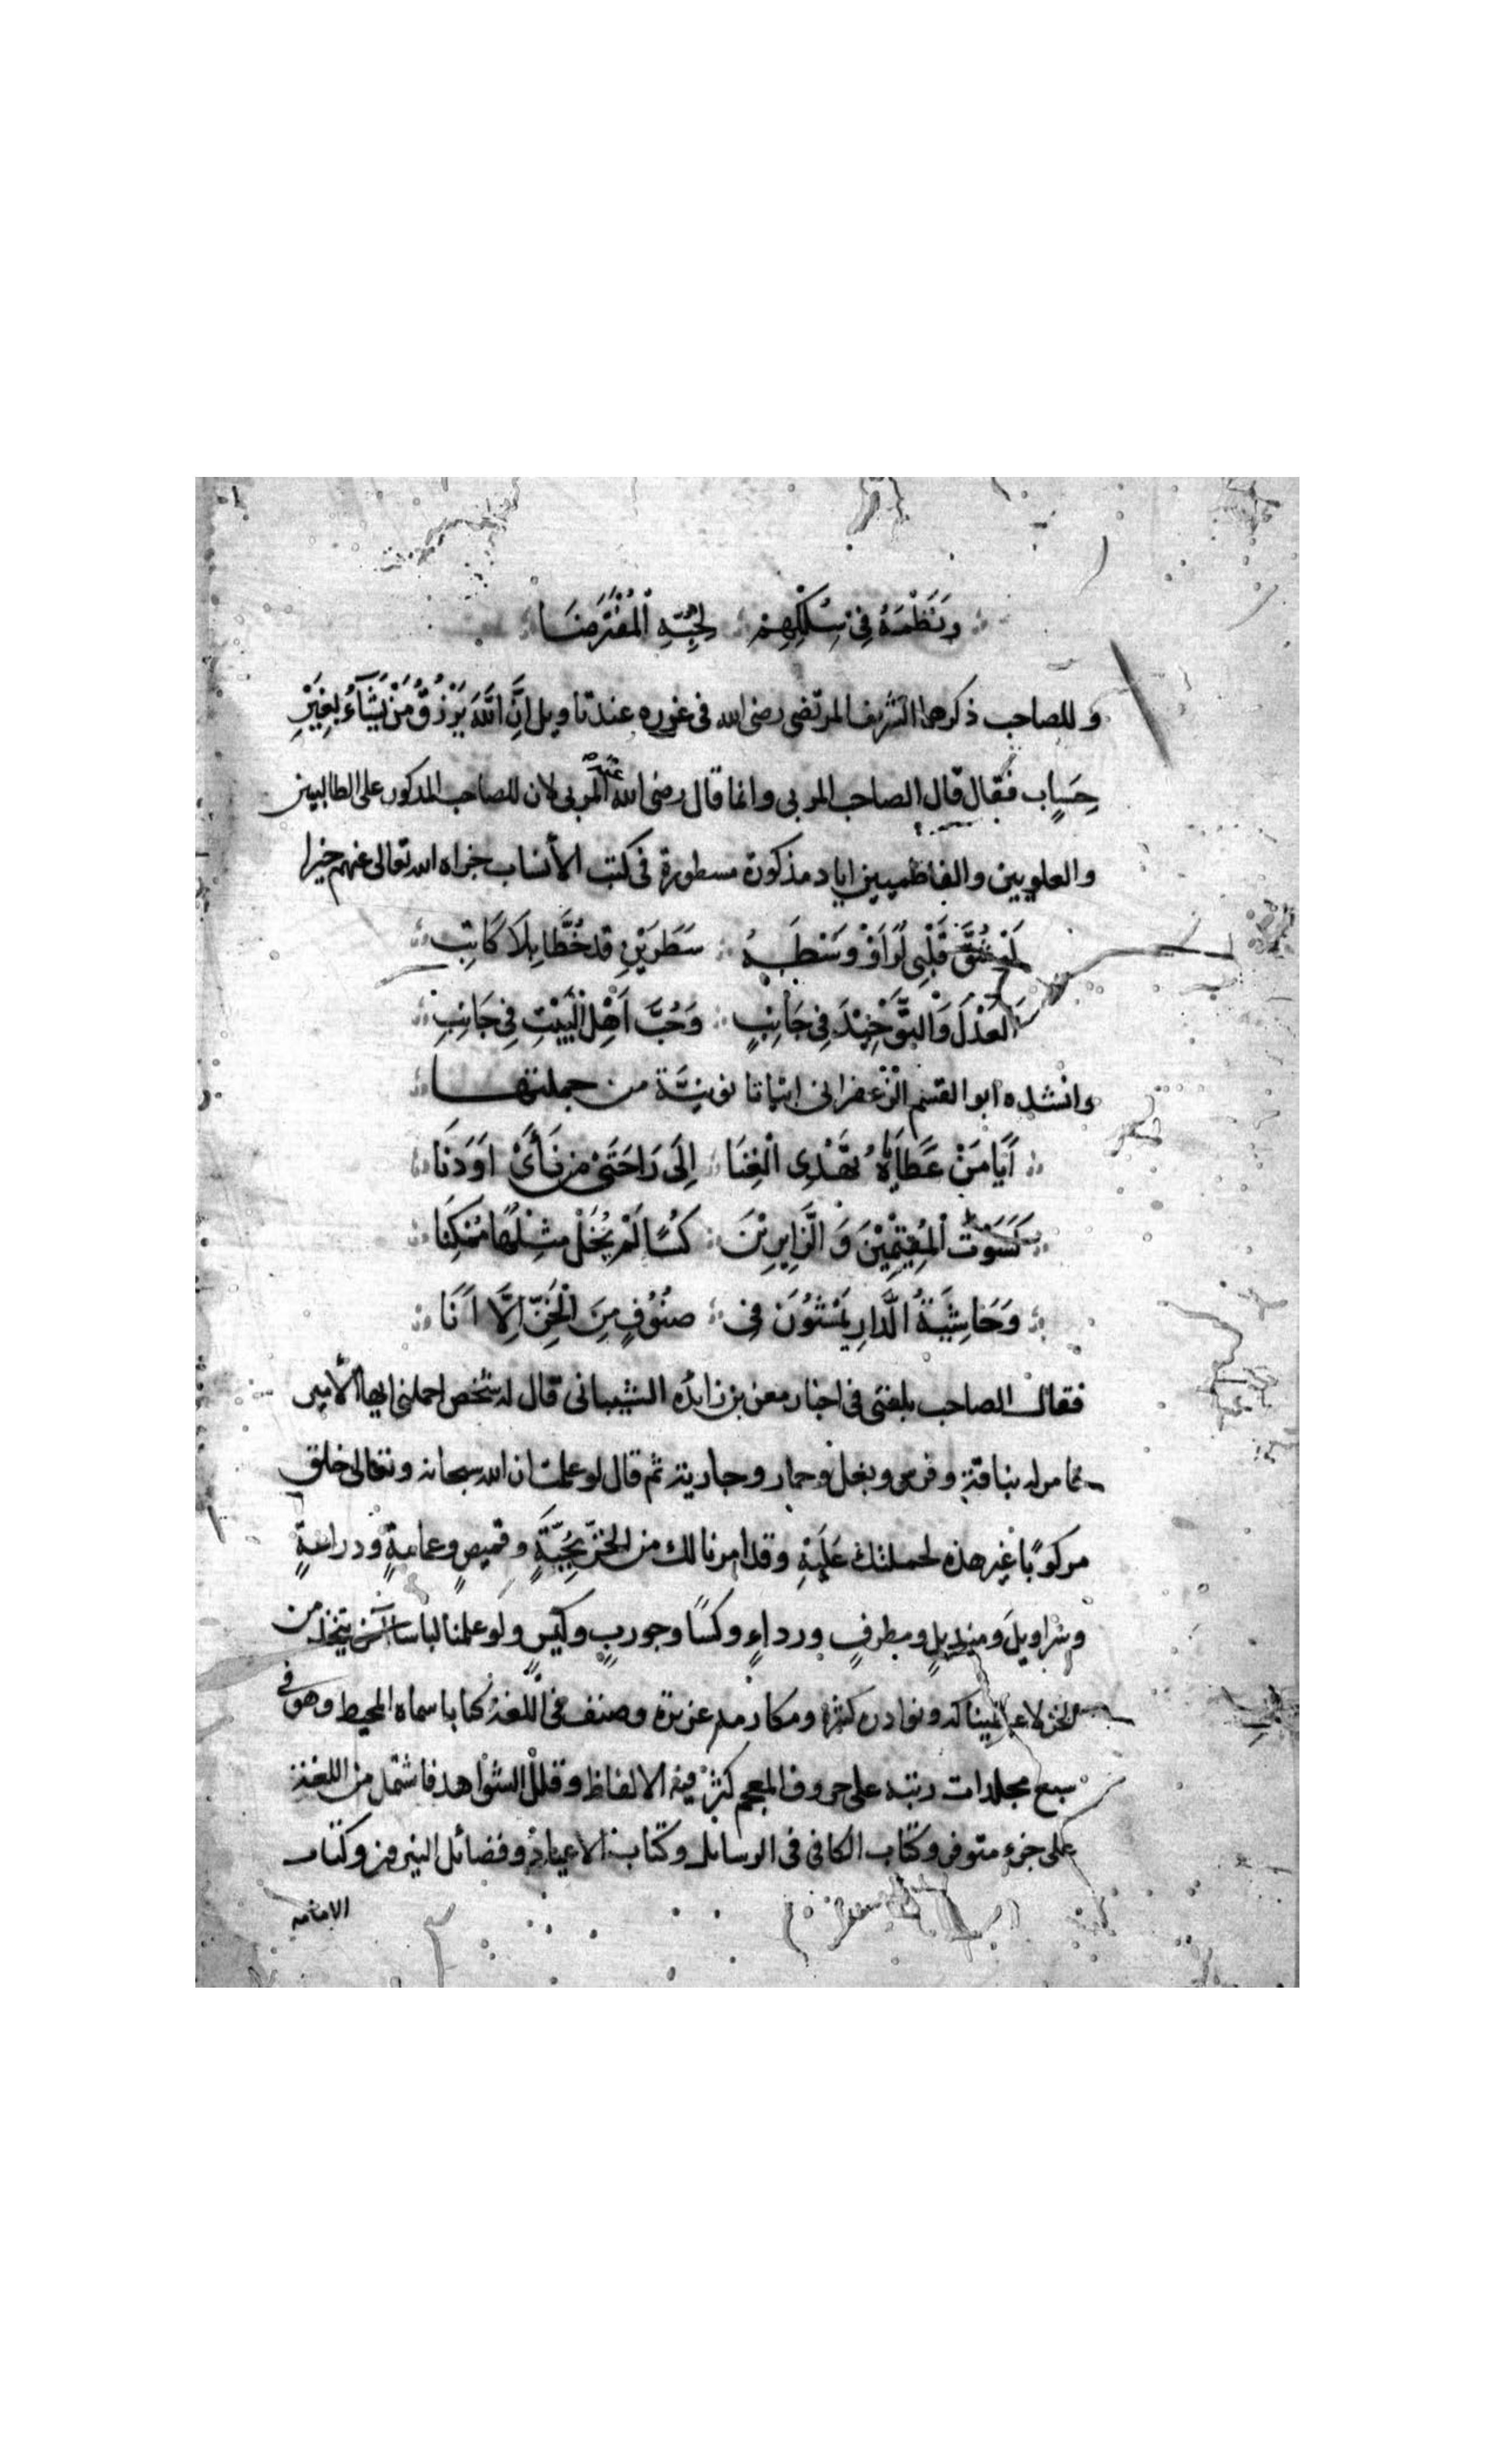 وَنَظْمَهُ فِي سِلْكِهِمْ لِحُبِّهِ الْمُفْتَرَضَا
وللصاحب ذكرهما الشريف المرتضى رضى الله فى غرره عند تاويل اِنَّ اللّٰهَ يَرْزُقُ مَنْ يَشَآءُ بِغَيْرِ
حِسَابٍ فقال قال الصاحب المربى وانما قال رضى الله عنه المربى لان للصاحب المذكور على الطالبيين
والعلويين والفاطميين اياد مذكورة مسطورة فى كتب الأنساب جزاه الله تعالى عنهم خيرا
لَوْ شُقَّ قَلْبِى لَرَاَوْ وَسْطَهُ سَطْرَيْنِ قَدْ خُطَّا بِلَا كَاتِبِ
اَلعَدْلَ وَالتَّوْحِيْدَ فِى جَانِبٍ وَحُبَّ اَهْلِ الْبَيْتِ فِى جَانِبِ
وانشده ابو القسم الزعفرانى ابياتا نونيّة من جملتها
اَيَا مَنْ عَطَايَاهُ تُهْدِى الْغِنَا اِلَى رَاحَتَىْ مَن نَأىَ اَوْ دَنَا
كَسَوْتَ الْمُقِيْمِيْنَ وَ الزَّايِرِيْنَ كُسًا لَمْ يُخَلْ مِثْلُهَا مُمْكِنَا
وَحَاشِيَةُ الدَّارِ يَمْشُوْنَ فِى صُنُوْفٍ مِنَ الْخَزِّ اِلَّا اَنَا
فقال الصاحب بلغنى فى اخبار معن بن زايده الشيبانى قال له شخص احملنى ايها الأمير
فامر له بناقة وفرس وبغل وحمار وجارية ثم قال لو علمت ان الله سبحانه وتعالى خلق
مركوبًا غير هذه لحملتك عَلَيْهِ وقد امرنا لك من الخزّ بِجُبَّةٍ وقميصٍ وعمامةٍ ودراعةٍ
وسراويلَ ومنديلٍ ومطرفٍ ورداءٍ وكسًا وجوربٍ وكيسٍ ولو علمنا لباسا آخر يتخذ من
الخز لاعطيناكه ونوادره كثيرة ومكارمه عزيزة وصنف فى اللغة كتابا سماه المحيط وهو فى
سبع مجلدات رتبه على حروف المعجم كثّر فيه الالفاظ وقلل الشواهد فاشتمل من اللغة
على جزء متوفر وكتاب الكافى فى الرسايل وكتاب الاعياد وفضائل النيروز وكتاب
الامامه